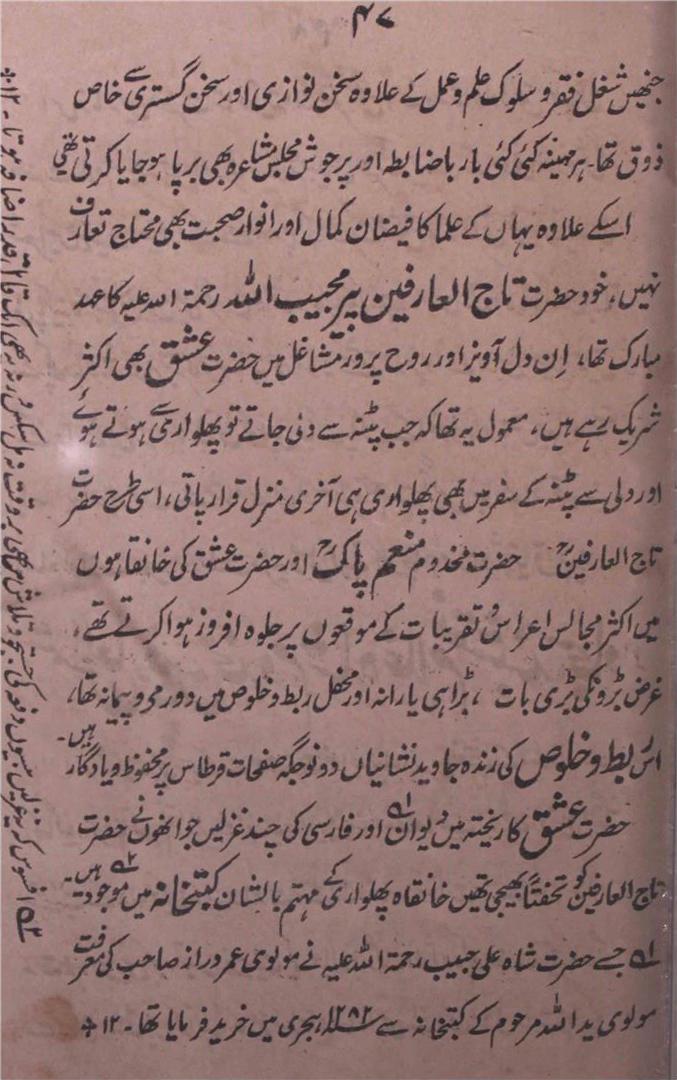 ۴۷
جنھیں شغل فقر و سلوک علم و عمل کے علاوہ سخن نوازی اور سخن گستری سے خاص
ذوق تھا۔ ہر مہینہ کئی کئی بار باضابطہ اور پر جوش مجلس مشاعرہ بھی برپا ہو جایا کرتی تھی
اسکے علاوہ یہاں کے علما کا فیضان کمال اور انوار صحبت بھی محتاج تعارف
نہیں، خود حضرت تاج العارفین پیر مجیب اللہ رحمۃ اللہ علیہ کا عہد
مبارک تھا، اِن دل آویز اور روح پرور مشاغل میں حضرت عشق بھی اکثر
شریک رہے ہیں، معمول یہ تھا کہ جب پٹنہ سے دلی جاتے تو پھلواری سے ہوتے ہوئے
اور دلی سے پٹنہ کے سفر میں بھی پھلواری ہی آخری منزل قرار پاتی، اسی طرح حضرت
تاج العارفینؒ حضرت مخدوم منعم پاکؒ اور حضرت عشق کی خانقاہوں
میں اکثر مجالس اعراس و تقریبات کے موقعوں پر جلوہ افروز ہوا کرتے تھے،
غرض بڑونکی بڑی بات، بڑا ہی یارانہ اور محفل ربط و خلوص میں دور مے و پیمانہ تھا،
اس ربط و خلوص کی زندہ جاوید نشانیاں دو نو جگہ صفحات قرطاس پر محفوظ و یادگار ہیں۔
حضرت عشق کا ریختہ میں دیوان ؎۱ اور فارسی کی چند غزلیں جو انھوں نے حضرت
تاج العارفین کو تحفتاً بھیجی تھیں خانقاہ پھلواری کے مہتم بالشان کتبخانہ میں موجود ؎۲ ہیں۔
؎۱ جسے حضرت شاہ علی حبیب رحمۃ اللہ علیہ نے مولوی عمر دراز صاحب کی معرفت
مولوی ید اللہ مرحوم کے کتبخانہ سے ۱۲۸۲ ہجری میں خرید فرمایا تھا۔ ۱۲ ❊
افسوس کہ یہ غزلیں جستجو و تلاش میں بھی بر وقت نہ مل سکیں ورنہ یہ بھی ایک قابل قدر اضافہ ہوتا۔ ۱۲ ❊